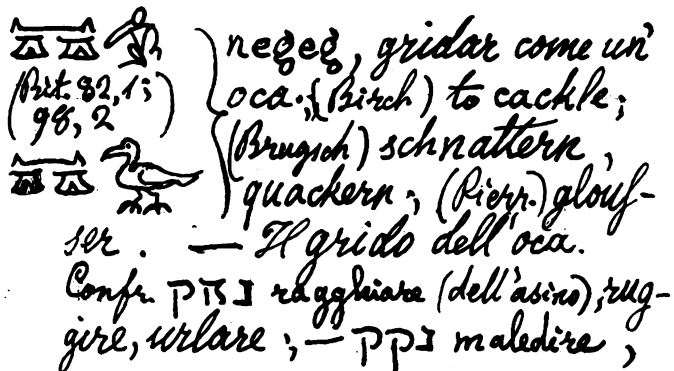 negeg, gridar come un'
(Rit. 82,1;
oca; (Birch) to cackle;
98,2)
(Brugsch) schnattern,
quackern; (Pierr.) glous-
ser. — Il grido dell'oca.
Confr. נהק ragghiare (dell'asino), rug-
gire, urlare; — נקק maledire,